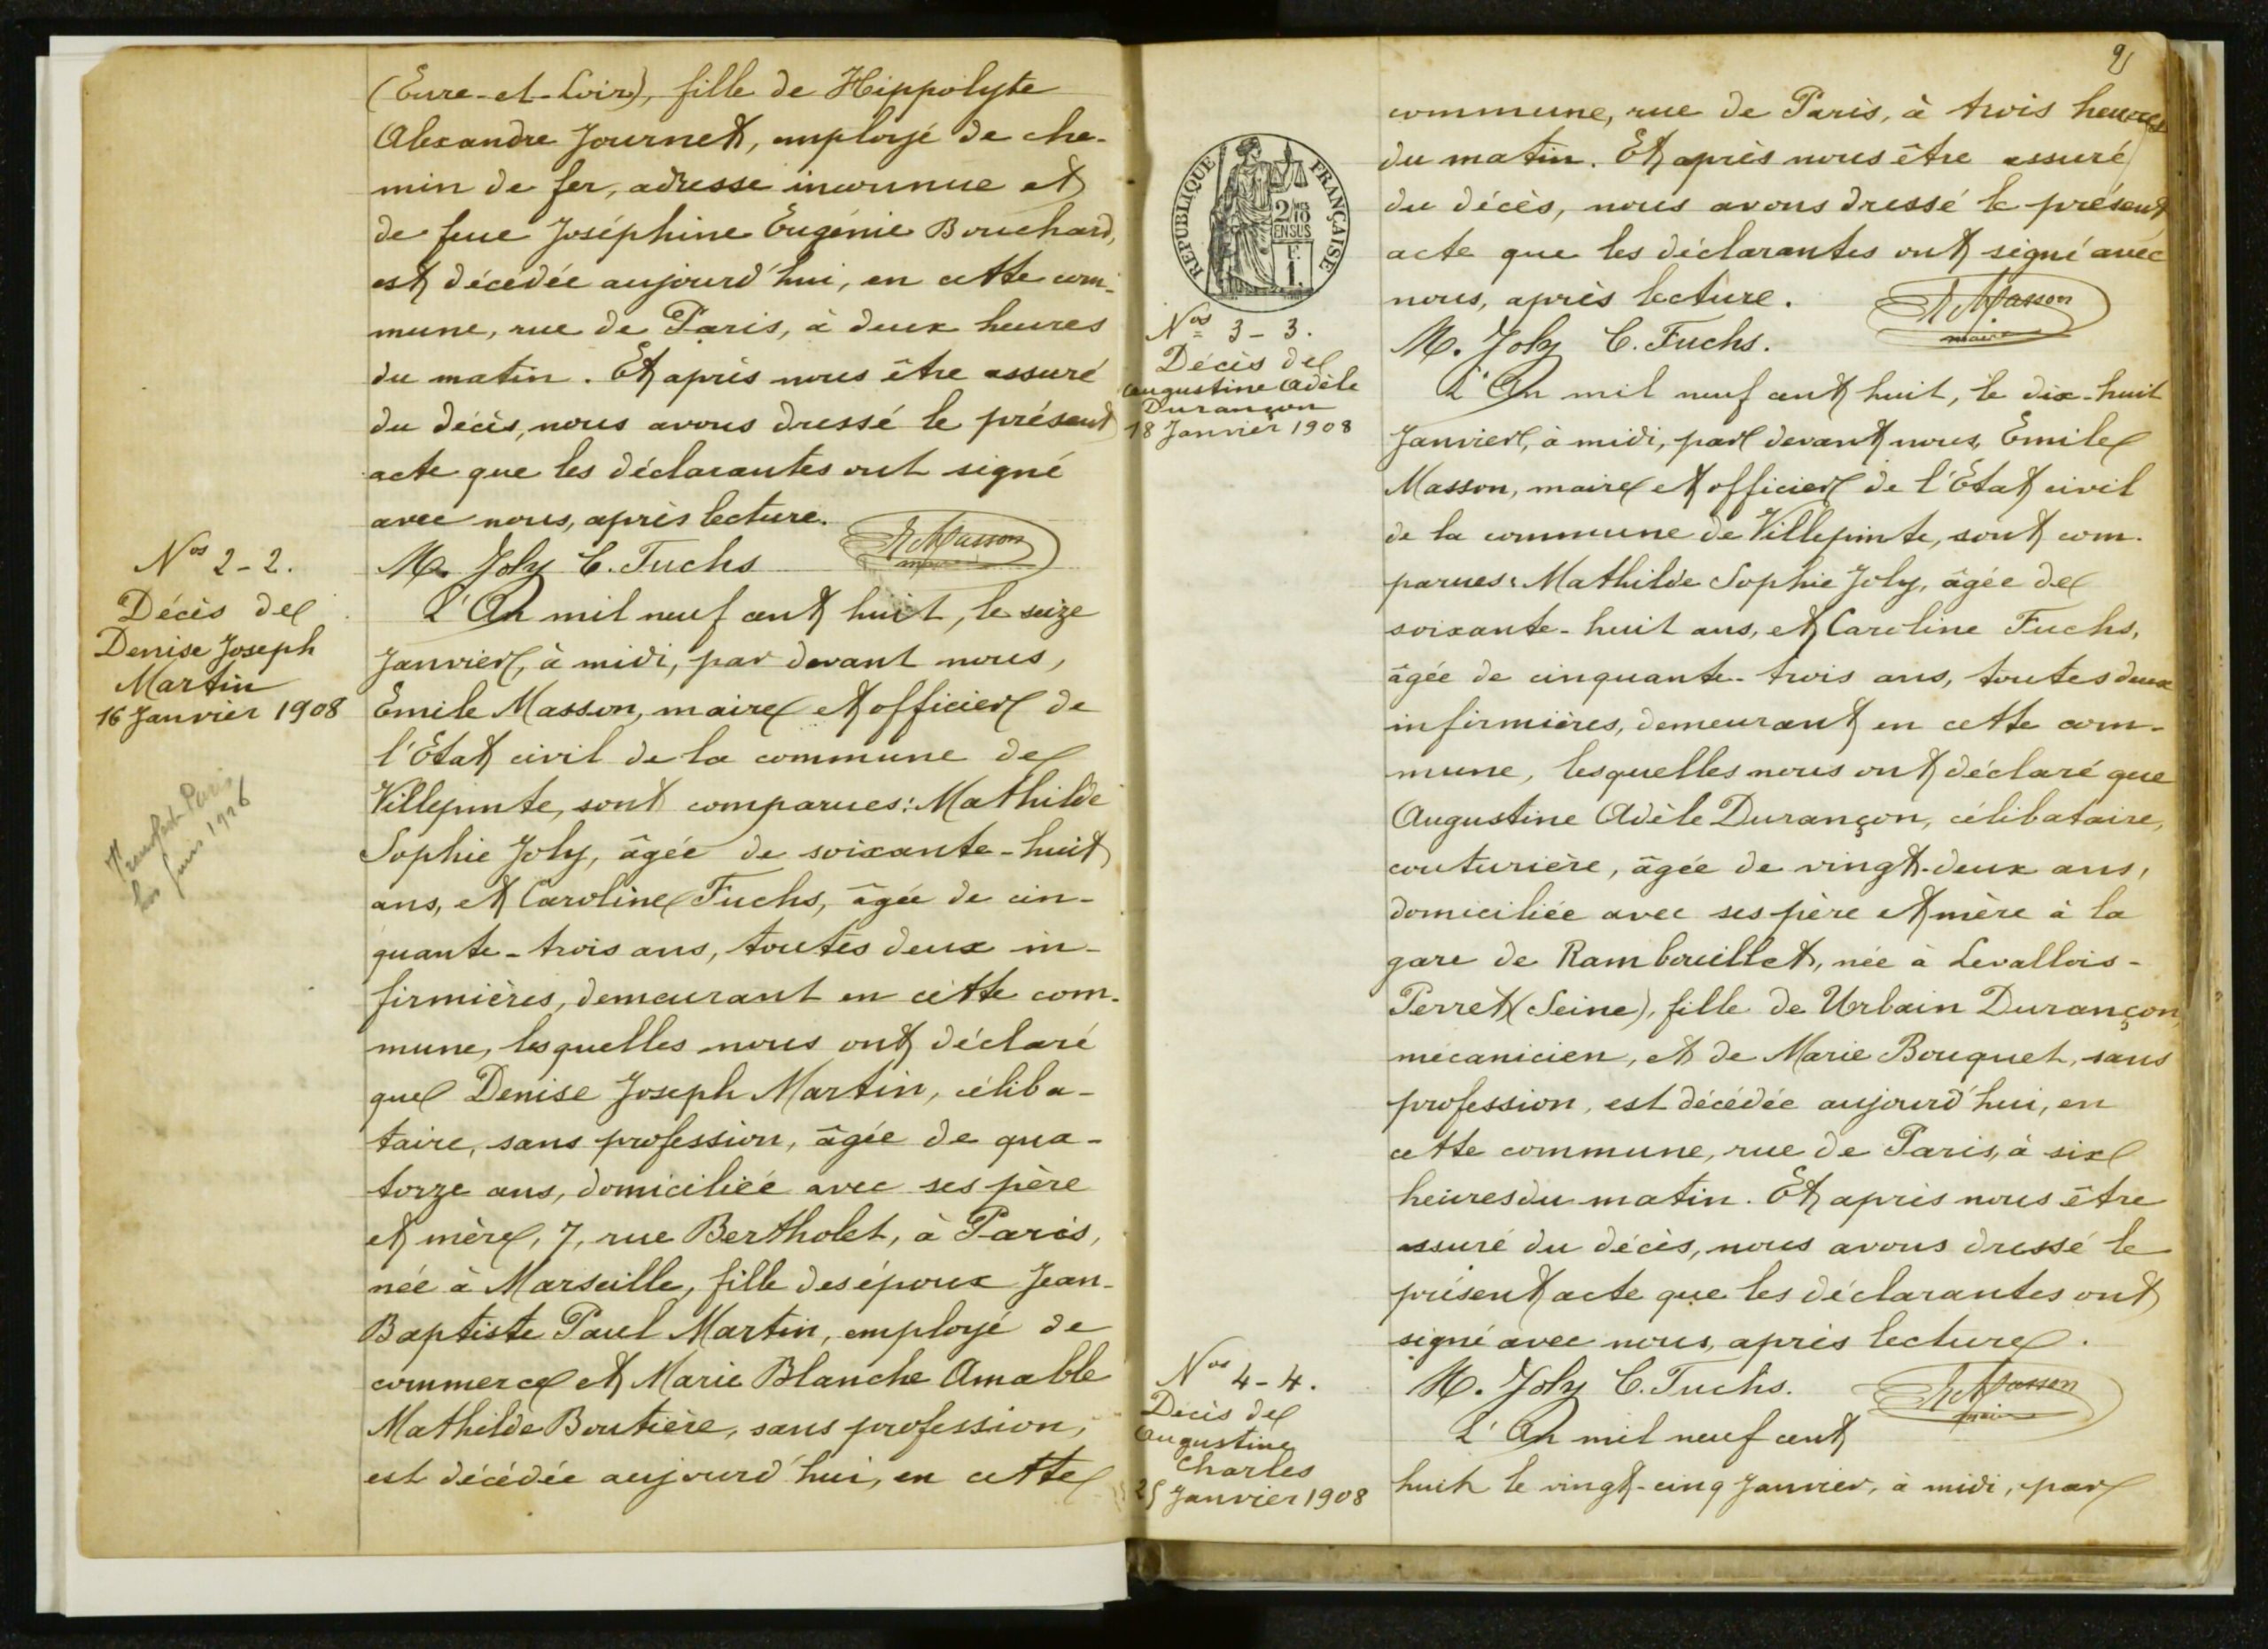 (Eure-et-Loir), fille de Hippolyte
Alexandre Journet, employé de che-
min de fer, adresse inconnue et
de feue Joséphine Eugénie Bouchard,
est décédée aujourd'hui, en cette com-
mune, rue de Paris, à deux heures
du matin. Et après nous être assuré
du décès, nous avons dressé le présent
acte que les déclarantes ont signé
avec nous, après lecture.
M. Joly C. Fuchs E Masson
maire
Nos 2-2.
Décès de
Denise Joseph
Martin
16 Janvier 1908
Paris
1926
L'An mil neuf cent huit, le seize
Janvier, à midi, par devant nous,
Emile Masson, maire et officier de
l'Etat civil de la commune de
Villepinte, sont comparues: Mathilde
Sophie Joly, âgée de soixante-huit
ans, et Caroline Fuchs, âgée de cin-
quante-trois ans, toutes deux in-
firmières, demeurant en cette com-
mune, lesquelles nous ont déclaré
que Denise Joseph Martin, céliba-
taire, sans profession, âgée de qua-
torze ans, domiciliée avec ses père
et mère, 7, rue Bertholet, à Paris,
née à Marseille, fille des époux Jean-
Baptiste Paul Martin, employé de
commerce et Marie Blanche Amable
Mathilde Boutière, sans profession,
est décédée aujourd'hui, en cette
9
commune, rue de Paris, à trois heures
du matin. Et après nous être assuré
du décès, nous avons dressé le présent
acte que les déclarantes ont signé avec
nous, après lecture. E Masson
maire
M. Joly C. Fuchs.
REPUBLIQUE FRANÇAISE
2/10 EN SUS
1 F.
Nos 3-3.
Décès de
Augustine Adèle
Durançon
18 Janvier 1908
L'An mil neuf cent huit, le dix-huit
Janvier, à midi, par devant nous, Emile
Masson, maire et officier de l'Etat civil
de la commune de Villepinte, sont com-
parues: Mathilde Sophie Joly, âgée de
soixante-huit ans, et Caroline Fuchs,
âgée de cinquante-trois ans, toutes deux
infirmières, demeurant en cette com-
mune, lesquelles nous ont déclaré que
Augustine Adèle Durançon, célibataire,
couturière, âgée de vingt-deux ans,
domiciliée avec ses père et mère à la
gare de Rambouillet, née à Levallois-
Perret (Seine), fille de Urbain Durançon,
mécanicien, et de Marie Bouquet, sans
profession, est décédée aujourd'hui, en
cette commune, rue de Paris, à six
heures du matin. Et après nous être
assuré du décès, nous avons dressé le
présent acte que les déclarantes ont
signé avec nous, après lecture.
M. Joly C. Fuchs. E Masson
maire
Nos 4-4.
Décès de
Augustine
Charles
25 Janvier 1908
L'An mil neuf cent
huit le vingt-cinq Janvier, à midi, par